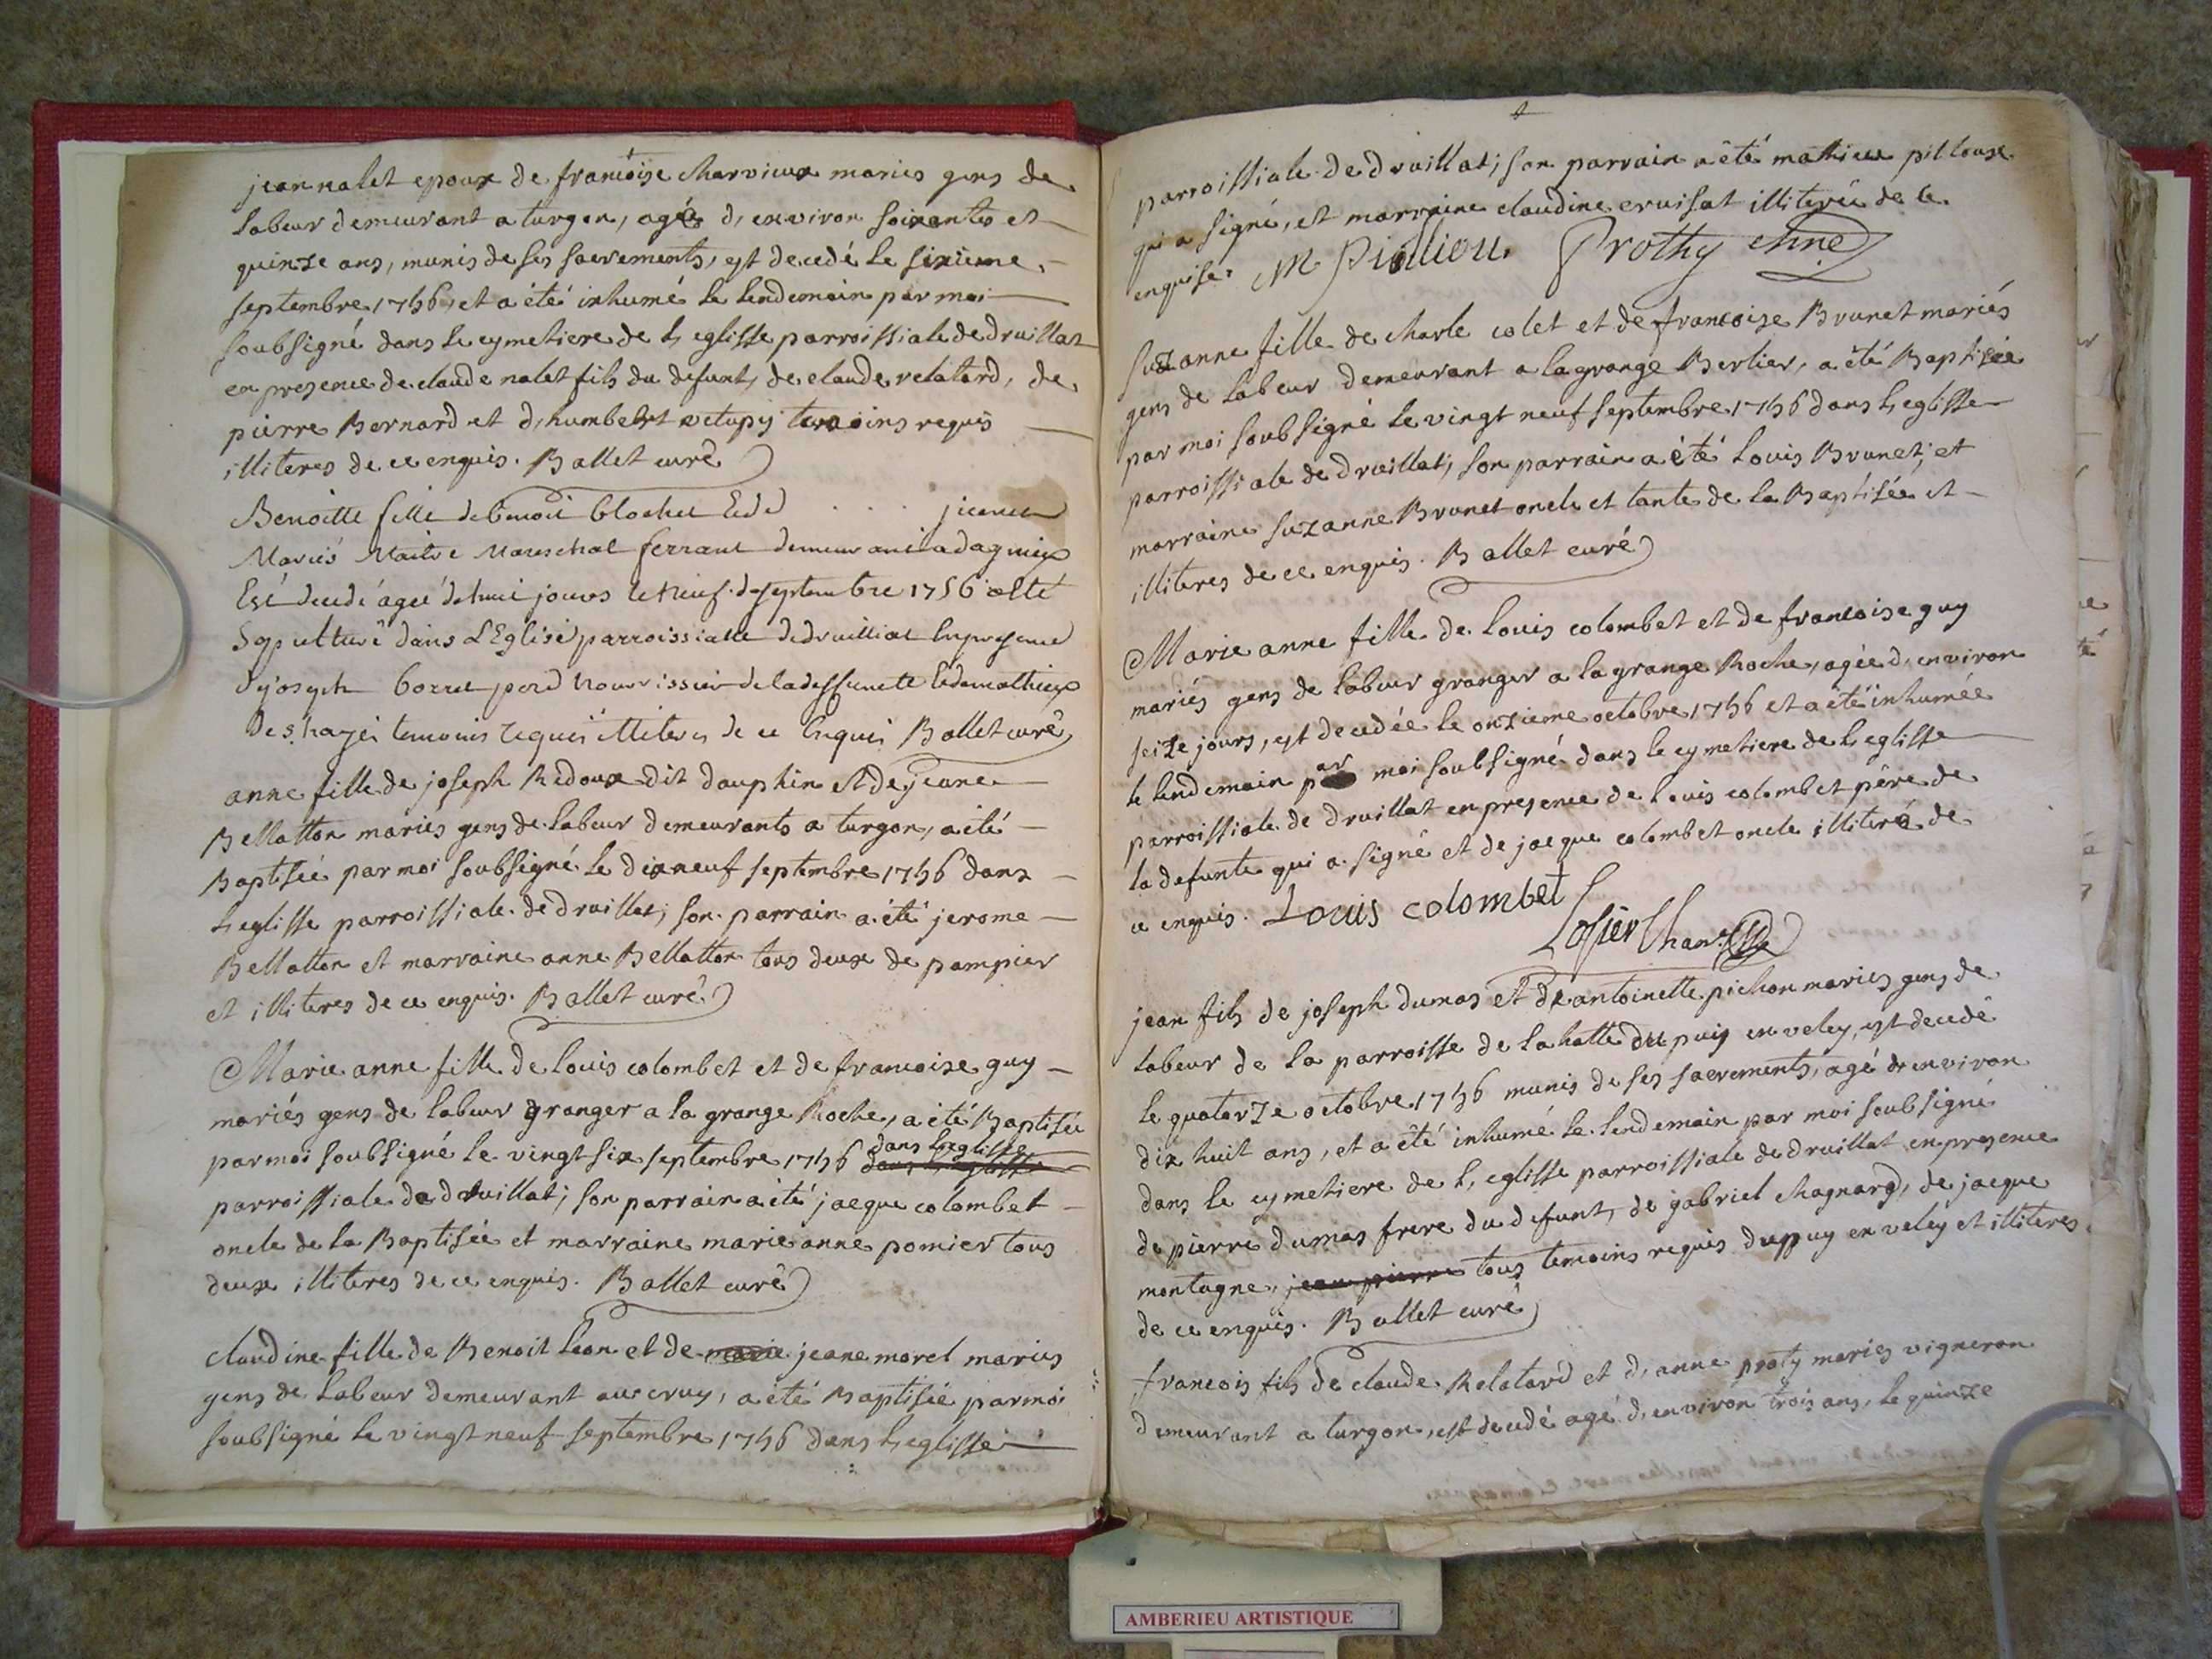 jean nalet epoux de francoise charvieux mariés gens de
labeur demeurant a turgon, agé d, environ soixante et
quinze ans, munis de ses sacrements, est decedé le sixieme
septembre 1756, et a été inhumé le lendemain par moi
soubsigné dans le cymetiere de l, eglisse parroissiale de druillat
en presence de claude nalet fils du defunt, de claude relatard, de
pierre Bernard et d, humbert temoins requis
illiteres de ce enquis. Ballet curé
Benoitte fille de benoit blochet Et d . . . .
Mariés Maitre Mareschal ferrant demeurant a dagnieux
Est decedé ageé de huit jours le neuf de septembre 1756 a Esté
Sepulturé dans L'Eglise parroissialle de druilliat En presence
de joseph borret pere nourissier de la deffunctte Et de mathieux
deshayes temoins requis illiteres de ce Enquis Ballet curé
anne fille de joseph Redoux dit dauphin et de jeane
Bellatton mariés gens de labeur demeurants a turgon, a été
Baptisée par moi soubsigné le dixneuf septembre 1756 dans
l, eglisse parroissiale de druillat; son parrain a été jerome
Bellatton et marraine anne Bellatton tous deux de pampier
et illiteres de ce enquis. Ballet curé
Marie anne fille de louis colombet et de francoise guy
mariés gens de labeur granger a la grange Roche, a été Baptisée
par moi soubsigné le vingt six septembre 1756 dans l, eglisse
parroissiale de druillat; son parrain a été jacque colombet
oncle de la Baptisée et marraine marie anne pomier tous
deux illiteres de ce enquis. Ballet curé
claudine fille de Benoit leon et de marie jeane morel mariés
gens de labeur demeurant au cruy, a été Baptisée par moi
soubsigné le vingt neuf septembre 1756 dans l, eglisse
parroissiale de druillat; son parrain a été mathieu pilloux
qui a signé, et marraine claudine cruisat illiterée de ce
enquise. M Pilliou Prothy chne
suzanne fille de charle colet et de francoise Brunet mariés
gens de labeur demeurant a la grange Berlier, a été Baptisée
par moi soubsigné le vingt neuf septembre 1756 dans l, eglisse
parroissiale de druillat; son parrain a été Louis Brunet, et
marraine suzanne Brunet oncle et tante de la Baptisée et
illiteres de ce enquis. Ballet curé
Marie anne fille de Louis colombet et de francoise guy
mariés gens de labeur granger a la grange Roche, agée d, environ
seize jours, est decedée le onzieme octobre 1756 et a été inhumée
le lendemain par moi soubsigné dans le cymetiere de l, eglisse
parroissiale de druillat en presence de louis colombet pére de
la defunte qui a signé et de jacque colombet oncle illiteré de
ce enquis. Louis colombet
jean fils de joseph dumas et de antoinette pichon mariés gens de
labeur de la parroisse de la halle du puy en veley, est decedé
le quatorze octobre 1756 munis de ses sacrements, agé de environ
dix huit ans, et a été inhumé le lendemain par moi soubsigné
dans le cymetiere de l, eglisse parroissiale de druillat en presence
de pierre dumas frere du defunt, de gabriel chagnard, de jacque
montagne, jean pierre tous temoins requis du puy en veley et illiteres
de ce enquis. Ballet curé
francois fils de claude Relatard et d, anne proty mariés vigneron
demeurant a turgon, est decedé agé d, environ trois ans, le quinze
AMBERIEU ARTISTIQUE